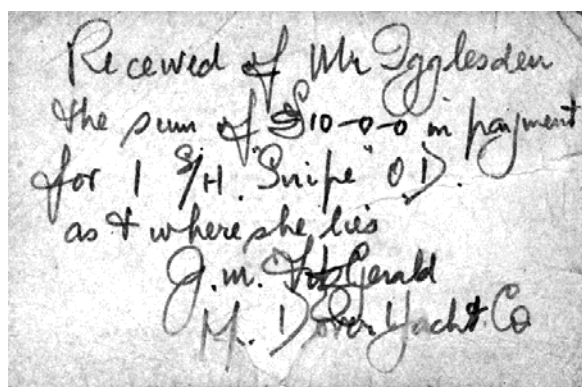 Received of Mr Igglesden
the sum of £10-0-0 in payment
for 1 S/H. "Snipe" O.D.
as & where she lies
J.M. FitzGerald
Dover Yacht Co